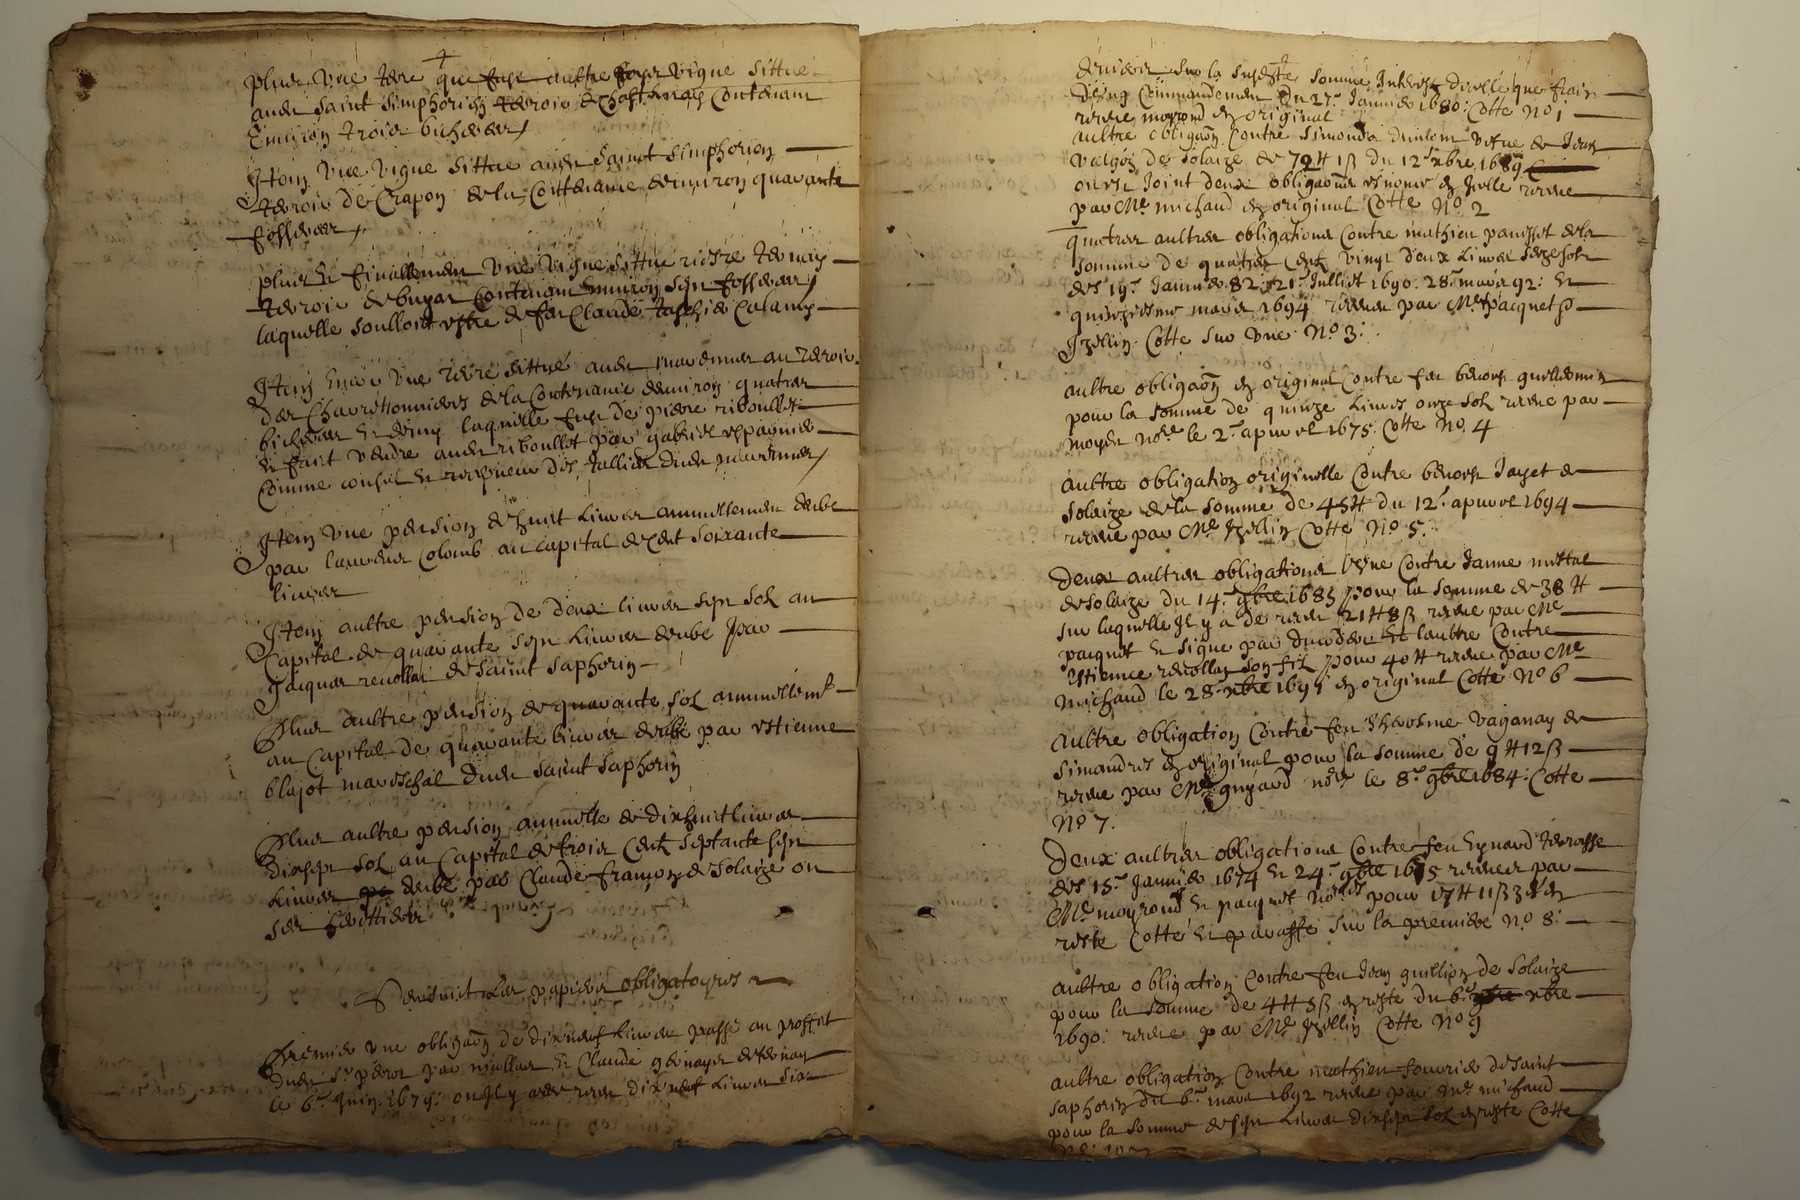 plus une terre que fust aultre foys vigne sittué
audit saint simphorien terroir de Chastanay Contenant
Environ trois bicherees /
Item une vigne sittué audit saint simphorien
terroir de Crapon de la Conttenance denviron quarante
fosserees /
plus et finallement une vigne sittue riere ternay
terroir de buyat Contenant environ sept fosserees /
laquelle soulloit estre de feu Claude Calamy
Item encor une terre sittué audit marennes au terroir
des Charettonnieres de la Contenance denviron quatres
bicherees et demy laquelle fust de pierre riboullet
et fait vendre audit riboullet par gabriel
Comme consul et recepveur des tallies dudit marennes /
Item une pension de huit Livres annuellement deube
par laurent Colomb au capital de cent soixante
livres
Item aultre pension de deux livres sept sol au
Capital de quarante sept Livres deube par
Jacques revollat de saint saphorin
Plus aultre pension de quarante sol annuellemt
au Capital de quarante livres deube par estienne
blajot mareschal dudit saint saphorin
Plus aultre pension annuelle de dixhuit livres
dixsept sol au Capital de trois Cent septante sept
Livres deube par Claude françon de solaize ou
ses heritiers
Sensuit Les papiers obligatoyres
Premier une obligaon de dixneuf Livres passé au proffit
dudit sr perot par et Claude de ternay
le 6e Juin 1679: dix neuf Livres six
deniers sur la susdte somme Interest dicelle que frais
Dung Commandement du 27e Janvier 1680: Cotte No 1
receue moyroud en original
aultre obligaon Contre Simonda vefve de Jean
de solaize de 72 ₶ 1 ß du 12e xbre 1689
ou est Joint deux obligaons et icelle receue
par Me michaud en original Cotte No. 2
quatres aultres obligations Contre mathieu de la
somme de quatres Cent vingt deux Livres seze sol
des 19e Janvier 82: 21e Julliet 1690. 28e mars 92: et
quinziesme mars 1694 receue par Me pacquet &
Cotte sur une No. 3:
aultre obligaon en original Contre feu benoist guillermin
pour la somme de quinze Livres onze sol receue par
moyen nore le 2e apvril 1675 Cotte No. 4
aultre obligation originelle Contre benoist Jayet de
solaize de la somme de 45 ₶ du 12e apvril 1694
receue par Me Cotte No. 5:
Deux aultres obligations lune Contre Janne mettal
de solaize du 14e gbre 1685 pour la somme de 38 ₶
sur laquelle Il y a de receu 21 ₶ 8 ß receue par Me
pacquet et signe par et laultre Contre
estienne revollat son fil pour 40 ₶ receue par Me
michaud le 28e xbre 1695 en original Cotte No 6
aultre obligation Contre feu Vaganay de
simandres en original pour la somme de 9 ₶ 12 ß
receue par Me guyard nore le 8e gbre 1684: Cotte
No 7.
Deux aultres obligations Contre feu terrasse
des 15e Janvier 1674 et 24e gbre 1675 receues par
Me moyroud et pacquet nores pour 17 ₶ 11 ß 3 d de
reste Cotte et paraffe sur la premiere No 8:
aultre obligation Contre feu Jean guillion de solaize
pour la somme de 4 ₶ 8 ß de reste du 6e xbre
1690: receue par Me Cotte No 9
aultre obligation Contre mathieu de saint
saphorin du 6e mars 1692 receue par Me michaud
pour la somme de sept Livres dixsept sol de reste Cotte
No: 10